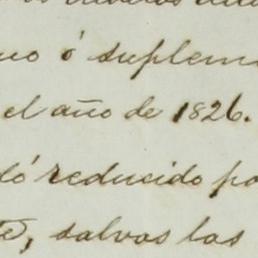 uo ó suplem
el año de 1826.
dó reducido po
te, salvas las